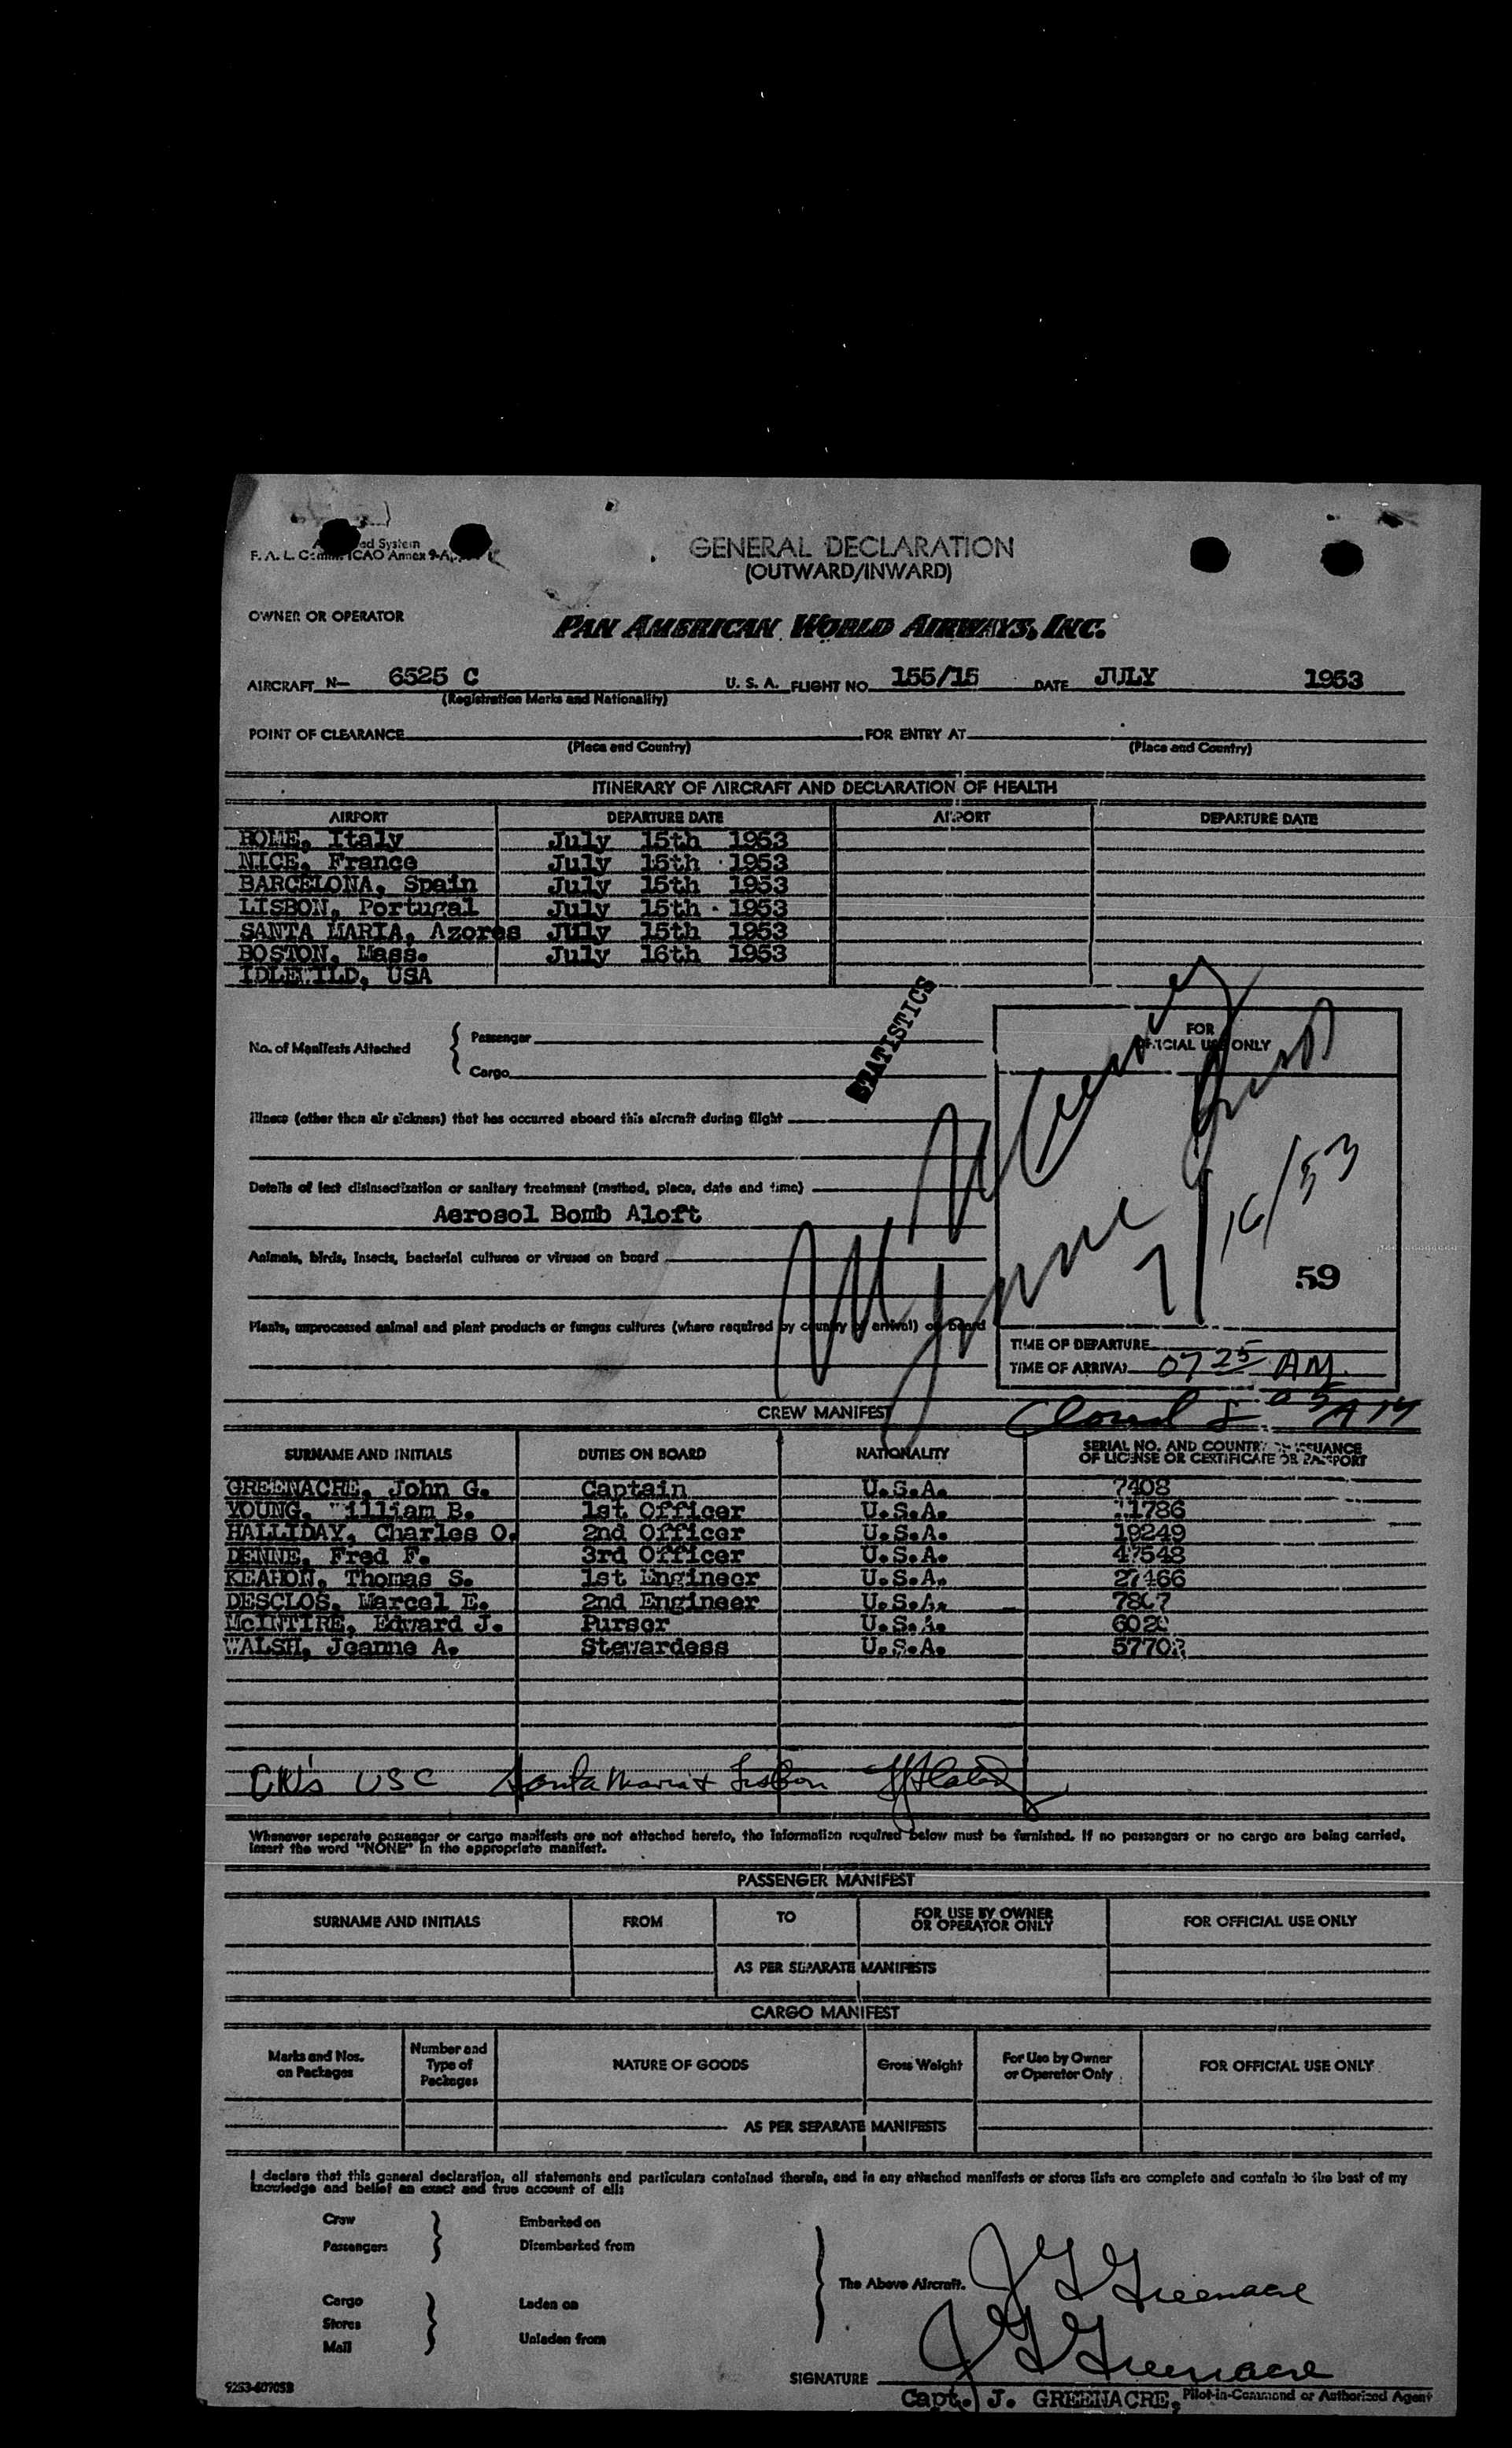 ed System
F. A. L. Comm. ICAO Annex 9-Ap
GENERAL DECLARATION
(OUTWARD/INWARD)
OWNER OR OPERATOR
PAN AMERICAN WORLD AIRWAYS, INC.
AIRCRAFT N— 6525 C U. S. A. FLIGHT NO. 155/15 DATE JULY 1953
(Registration Marks and Nationality)
POINT OF CLEARANCE FOR ENTRY AT
(Place and Country) (Place and Country)
ITINERARY OF AIRCRAFT AND DECLARATION OF HEALTH
AIRPORT DEPARTURE DATE AIRPORT DEPARTURE DATE
ROME, Italy July 15th 1953
NICE, France July 15th 1953
BARCELONA, Spain July 15th 1953
LISBON, Portugal July 15th 1953
SANTA MARIA, Azores July 15th 1953
BOSTON, Mass. July 16th 1953
IDLEWILD, USA
STATISTICS
No. of Manifests Attached { Passenger
Cargo
FOR
OFFICIAL USE ONLY
Illness (other than air sickness) that has occurred aboard this aircraft during flight
Details of last disinsectization or sanitary treatment (method, place, date and time)
Aerosol Bomb Aloft
7/16/53
Animals, birds, insects, bacterial cultures or viruses on board
59
Plants, unprocessed animal and plant products or fungus cultures (where required by country of arrival) on board
TIME OF DEPARTURE
TIME OF ARRIVAL 0725 AM
CREW MANIFEST
SURNAME AND INITIALS DUTIES ON BOARD NATIONALITY SERIAL NO. AND COUNTRY OF ISSUANCE
OF LICENSE OR CERTIFICATE OR PASSPORT
GREENACRE, John G. Captain U.S.A. 7408
YOUNG, William B. 1st Officer U.S.A. 11786
HALLIDAY, Charles O. 2nd Officer U.S.A. 19249
DENNE, Fred F. 3rd Officer U.S.A. 47548
KEAHON, Thomas S. 1st Engineer U.S.A. 27466
DESCLOS, Marcel E. 2nd Engineer U.S.A. 7867
McINTIRE, Edward J. Purser U.S.A.
WALSH, Jeanne A. Stewardess U.S.A.
USC Santa Maria + Lisbon
Whenever separate passenger or cargo manifests are not attached hereto, the information required below must be furnished. If no passengers or no cargo are being carried,
insert the word "NONE" in the appropriate manifest.
PASSENGER MANIFEST
SURNAME AND INITIALS FROM TO FOR USE BY OWNER
OR OPERATOR ONLY FOR OFFICIAL USE ONLY
AS PER SEPARATE MANIFESTS
CARGO MANIFEST
Marks and Nos.
on Packages Number and
Type of
Packages NATURE OF GOODS Gross Weight For Use by Owner
or Operator Only FOR OFFICIAL USE ONLY
AS PER SEPARATE MANIFESTS
I declare that this general declaration, all statements and particulars contained therein, and in any attached manifests or stores lists are complete and contain to the best of my
knowledge and belief an exact and true account of all:
Crew Embarked on
Passengers Disembarked from
The Above Aircraft. J G Greenacre
Cargo Laden on
Stores
Mail Unladen from
SIGNATURE J G Greenacre
9253-607053
Capt. J. GREENACRE, Pilot-in-Command or Authorized Agent